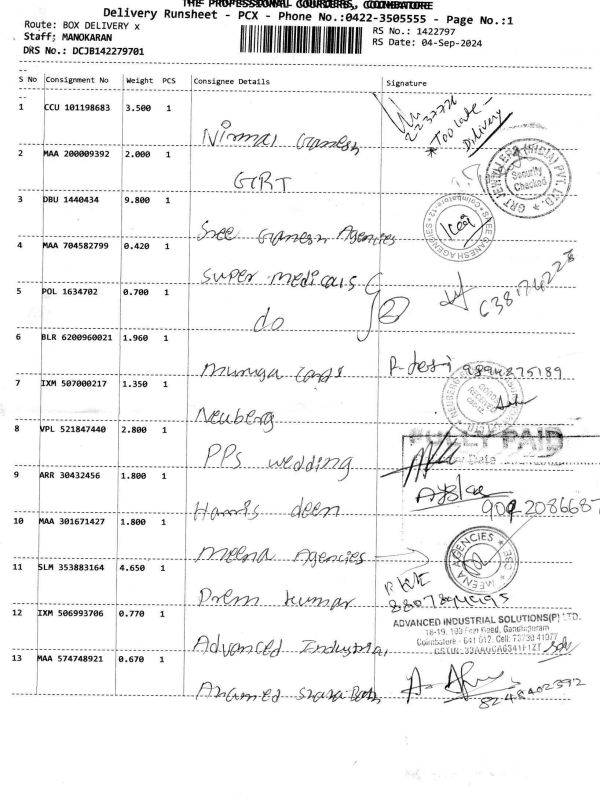 THE PROFESSIONAL COURIERS, COIMBATORE
Delivery Runsheet - PCX - Phone No.:0422-3505555 - Page No.:1
Route: BOX DELIVERY x
Staff; MANOKARAN
DRS No.: DCJB142279701
RS No.: 1422797
RS Date: 04-Sep-2024
S No Consignment No Weight PCS Consignee Details Signature
1 CCU 101198683 3.500 1 Nirmal Ganesh
*Too late - Delivery
2 MAA 200009392 2.000 1 GRT
GRT JEWELLERS (INDIA) PVT. LTD. * Security Checked
3 DBU 1440434 9.800 1 Sree Ganesh Agencies
SREE GANESH AGENCIES * Coimbatore-12
4 MAA 704582799 0.420 1 Super medicals
5 POL 1634702 0.700 1 do
6381741228
6 BLR 6200960021 1.960 1 Muruga
7 IXM 507000217 1.350 1 Neuberg
8 VPL 521847440 2.800 1 PPS wedding
FULLY PAID
Date
9 ARR 30432456 1.800 1 Harris deen
10 MAA 301671427 1.800 1 Meena Agencies
MEENA AGENCIES * CBE *
11 SLM 353883164 4.650 1 Prem kumar
12 IXM 506993706 0.770 1 Advanced Industrial
ADVANCED INDUSTRIAL SOLUTIONS(P) LTD.
Coimbatore - 641 012. Cell: 73730 41077
13 MAA 574748921 0.670 1
8248402372